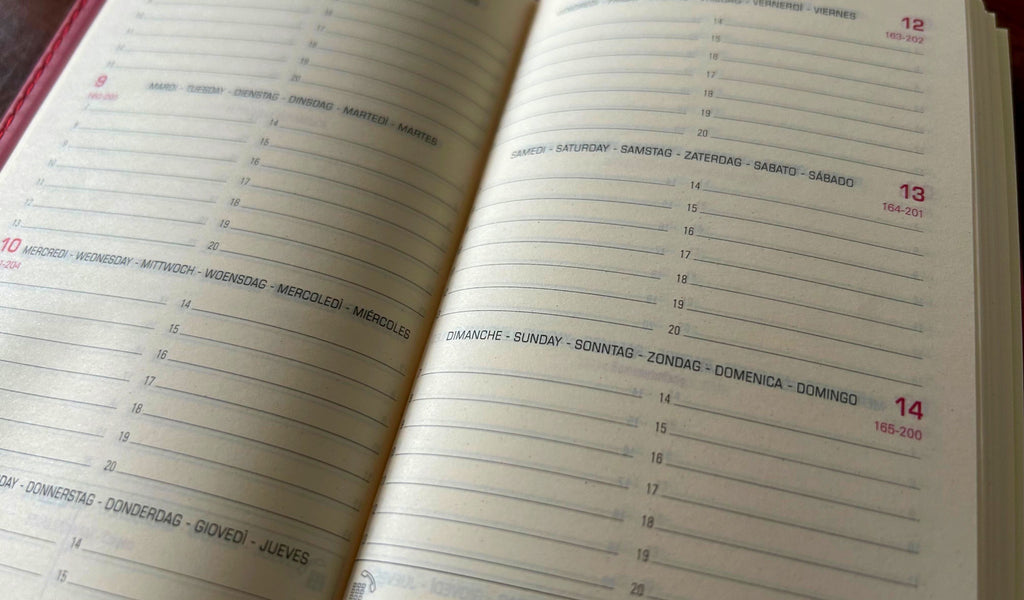 20
9
160-205
MARDI - TUESDAY - DIENSTAG - DINSDAG - MARTEDÌ - MARTES
14
15
16
17
18
19
20
10
MERCREDI - WEDNESDAY - MITTWOCH - WOENSDAG - MERCOLEDÌ - MIÉRCOLES
-204
14
15
16
17
18
19
20
DAY - DONNERSTAG - DONDERDAG - GIOVEDÌ - JUEVES
14
15
VENERDÌ - VIERNES
12
163-202
14
15
16
17
18
19
20
SAMEDI - SATURDAY - SAMSTAG - ZATERDAG - SABATO - SÁBADO
13
164-201
14
15
16
17
18
19
20
DIMANCHE - SUNDAY - SONNTAG - ZONDAG - DOMENICA - DOMINGO
14
165-200
14
15
16
17
18
19
20